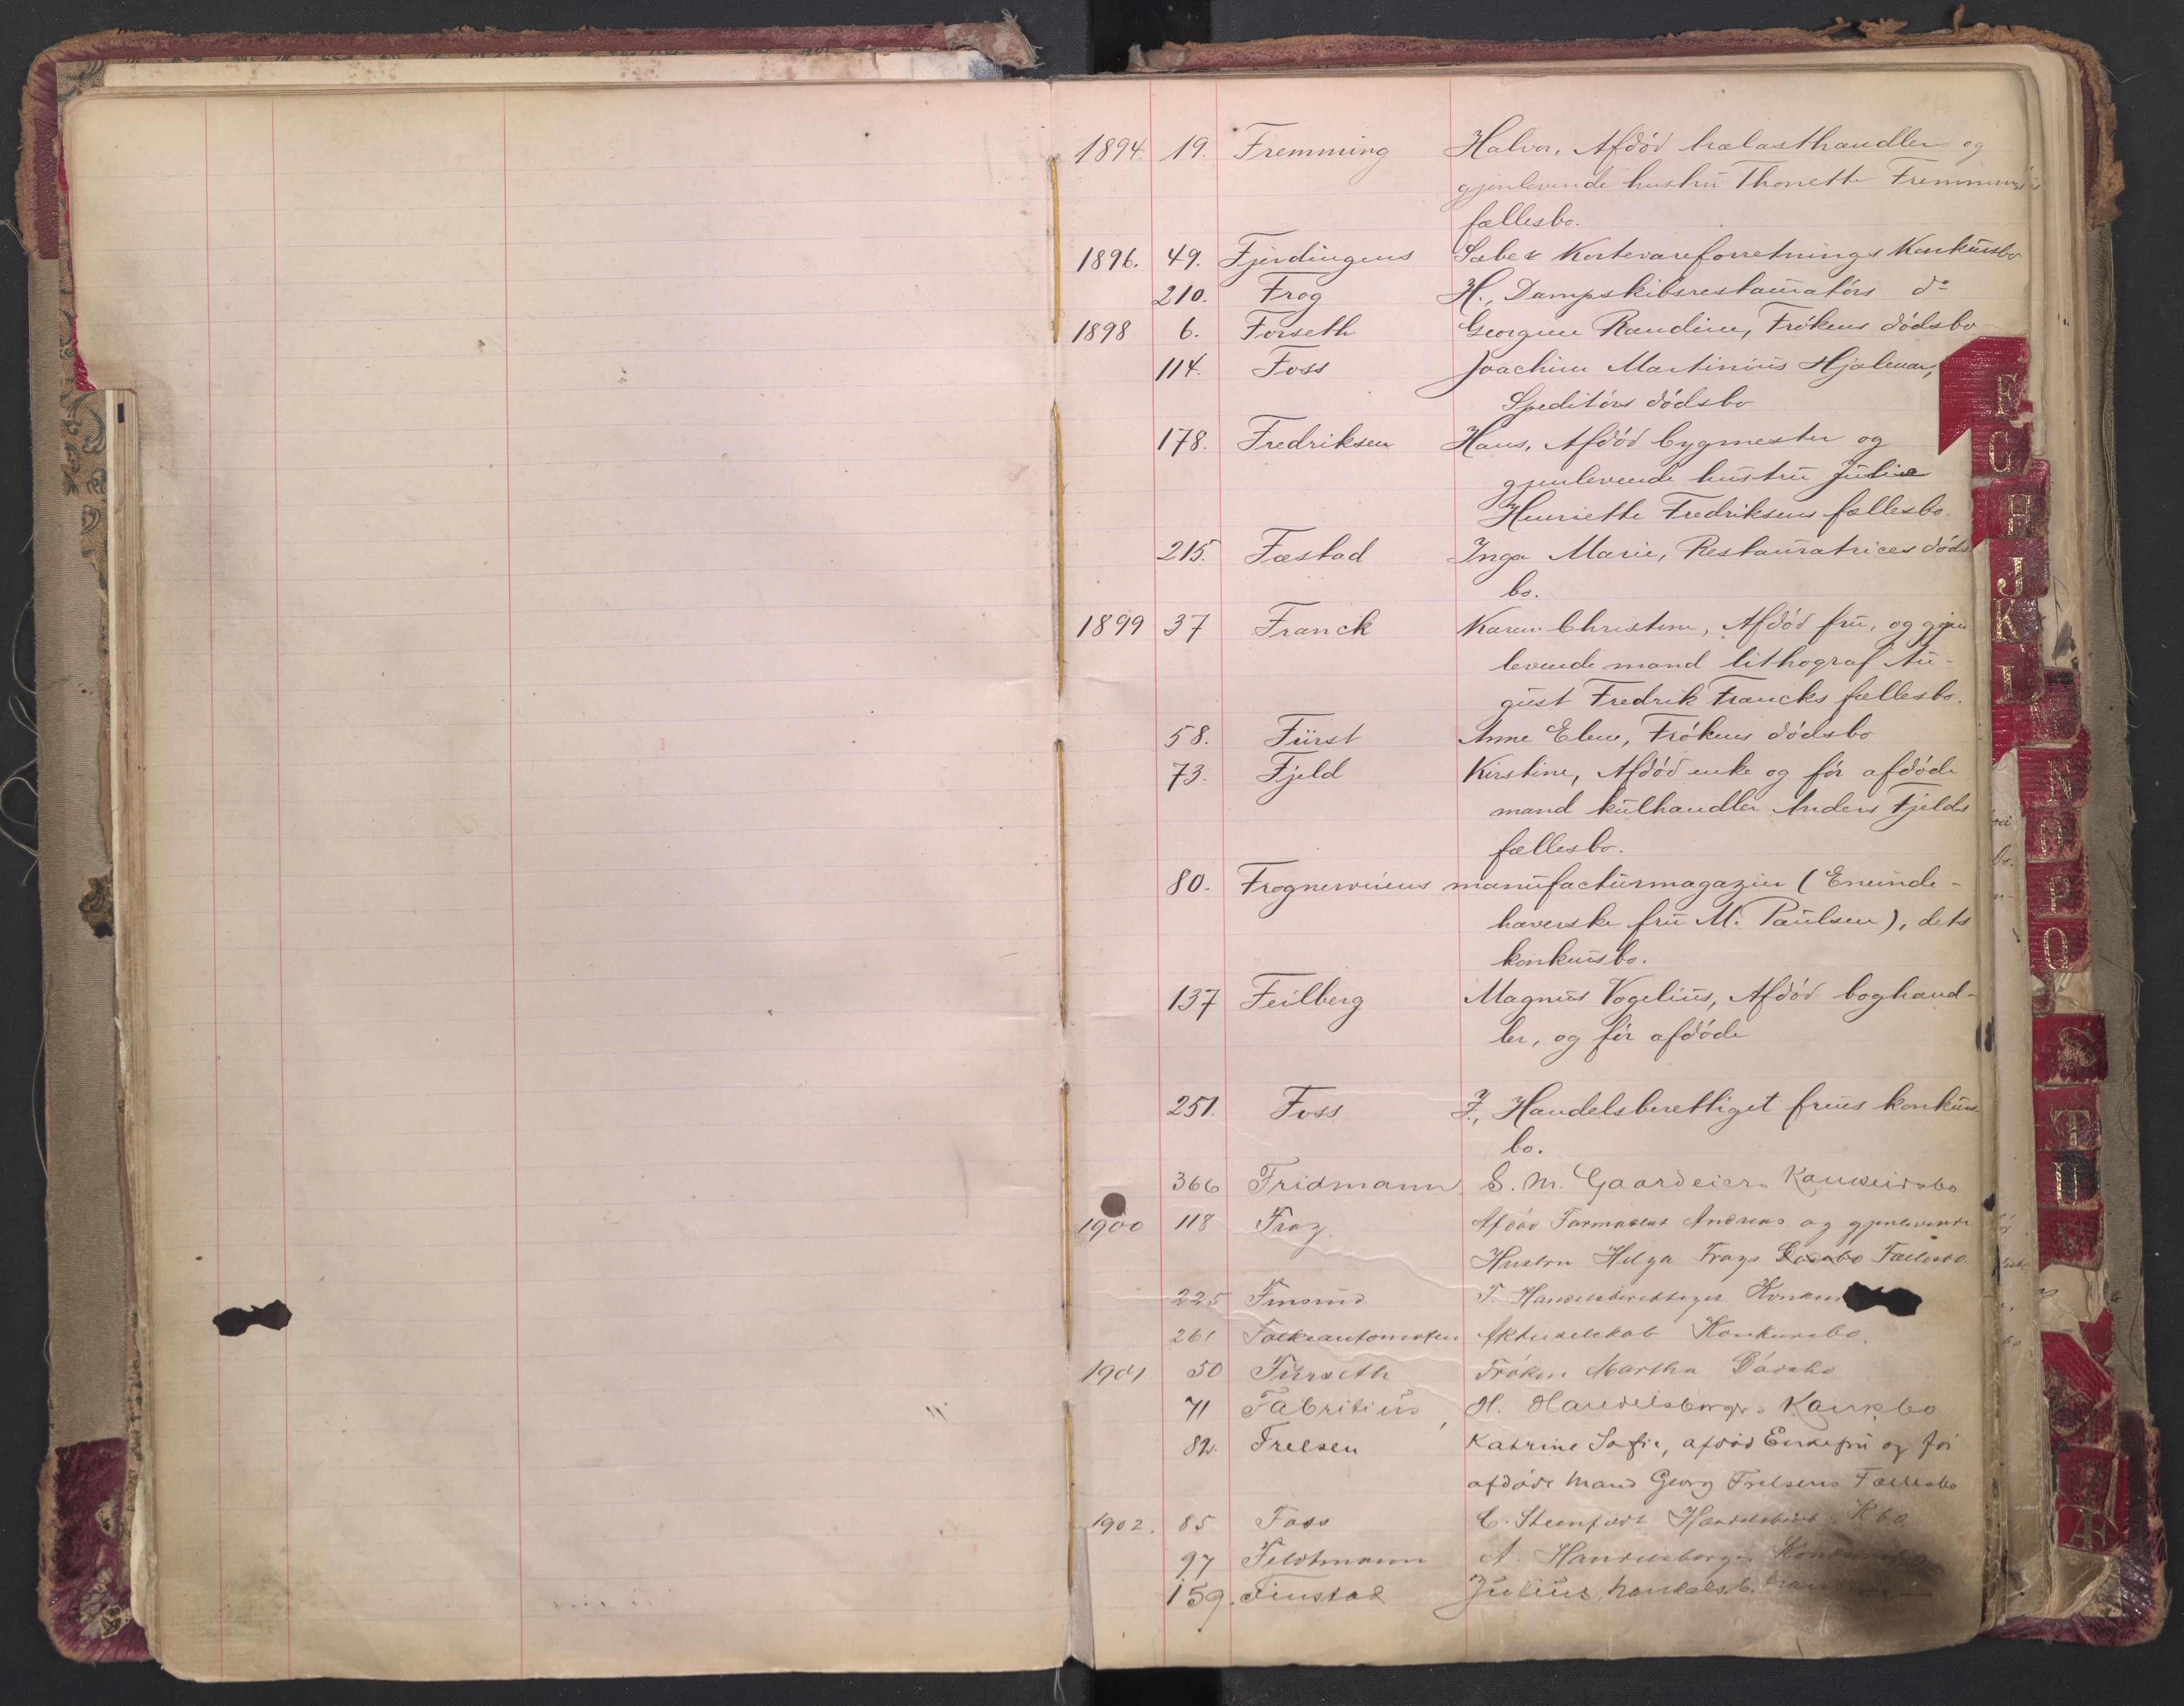 1894. 19. Fremming Halvor, Afdød trælasthandler og
gjenlevende hustru Thonette Fremmings
fællesbo.
1896. 49. Fjerdingens Sæbe & Kortevareforretnings Konkursbo
210. Frog H., Dampskibsrestauratørs do
1898 6. Forseth Georgine Randine, Frøkens dødsbo
114. Foss Joachim Martinius Hjalmar,
Speditørs dødsbo
178. Fredriksen Hans, Afdød bygmester og
gjenlevende hustru Julie
Henriette Fredriksens fællesbo.
215. Fæstad Inga Marie, Restauratrices døds
bo.
1899 37 Franck Karen Christine, Afdød fru, og gjen
levende mand lithograf Au-
gust Fredrik Francks fællesbo.
58. Fürst Anne Elene, Frøkens dødsbo
73. Fjeld Kirstine, Afdød enke og før afdøde
mand kulhandler Anders Fjelds
fællesbo.
80. Frognerveiens manufacturmagazin (Eneinde-
haverske fru M. Paulsen), dets
konkursbo.
137 Feilberg Magnus Vogelius, Afdød boghand-
ler, og før afdøde
251. Foss F., Handelsberettiget frues konkurs
bo.
366 Fridmann S. M. Gaardeiers Konkursbo
1900 118 Afdød Farmaceut Andreas og gjenlevende
Hustru Helga Dødsbo Fællesbo
225 T. Handelsberettiget
261 Folkeautomaten Aktieselskab Konkursbo.
1901 50 Furseth Frøken Martha Dødsbo
71 Fabritius, H. Handelsborgers Konkbo
82. Frelsen Katrine Sofie, afdød Enkefru og før
afdøde Mand Georg Frelsens Fællesbo
1902. 85 Foss C. Steenfeldt K bo.
97 Feldtmann A. Handelsborger
159. Finstad Julius handelsb.
F
G
H
J
K
L
N
P
Q
S
T
U
Æ